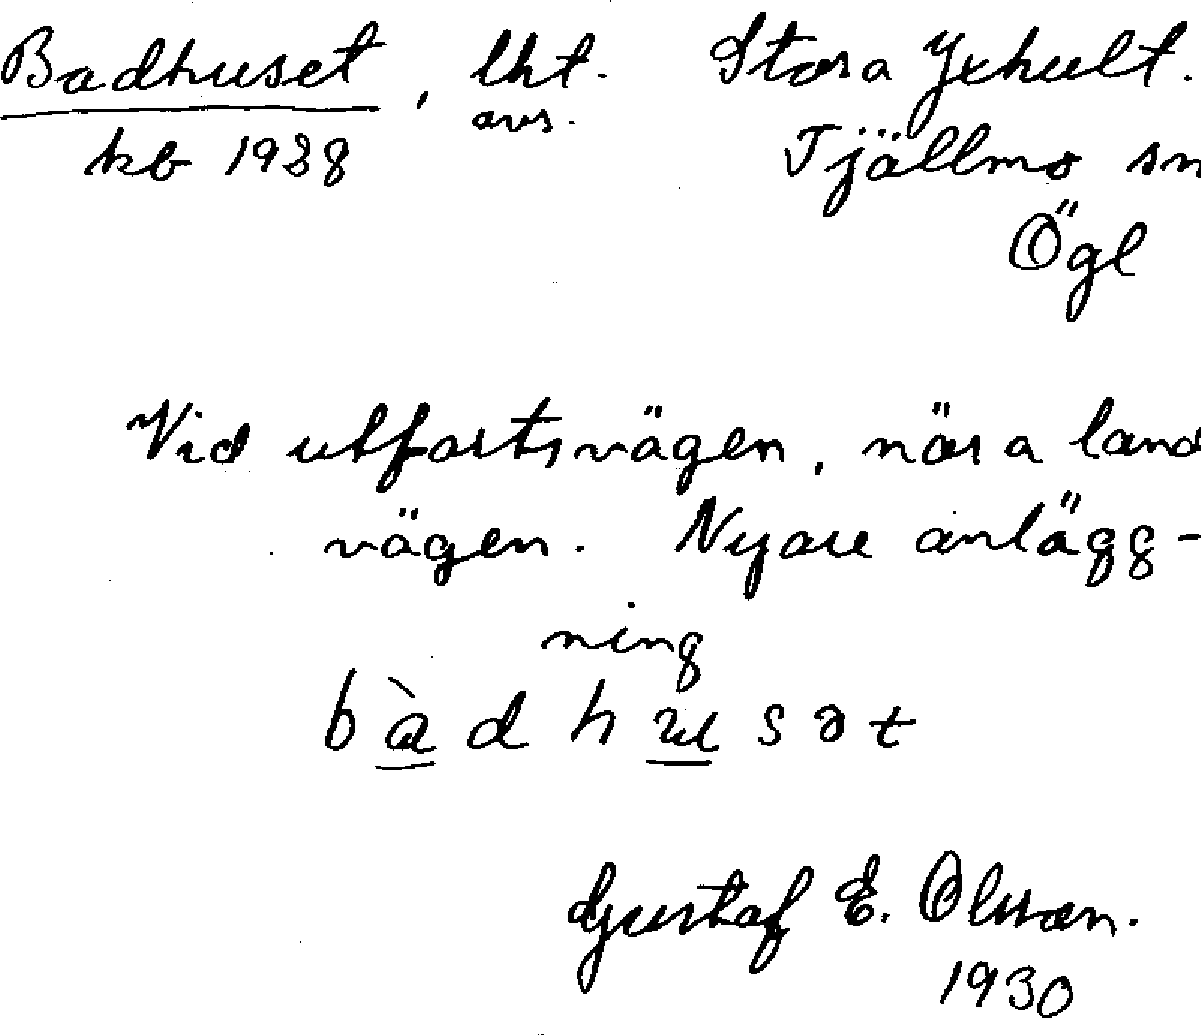 Badhuset, lht. Stora Yxhult.
avs.
kb 1928 Tjällmo sn
Ögl
Vid utfartsvägen, nära land
vägen. Nyare anlägg-
ning
bàdhusət
Gustaf E. Olsson.
1930